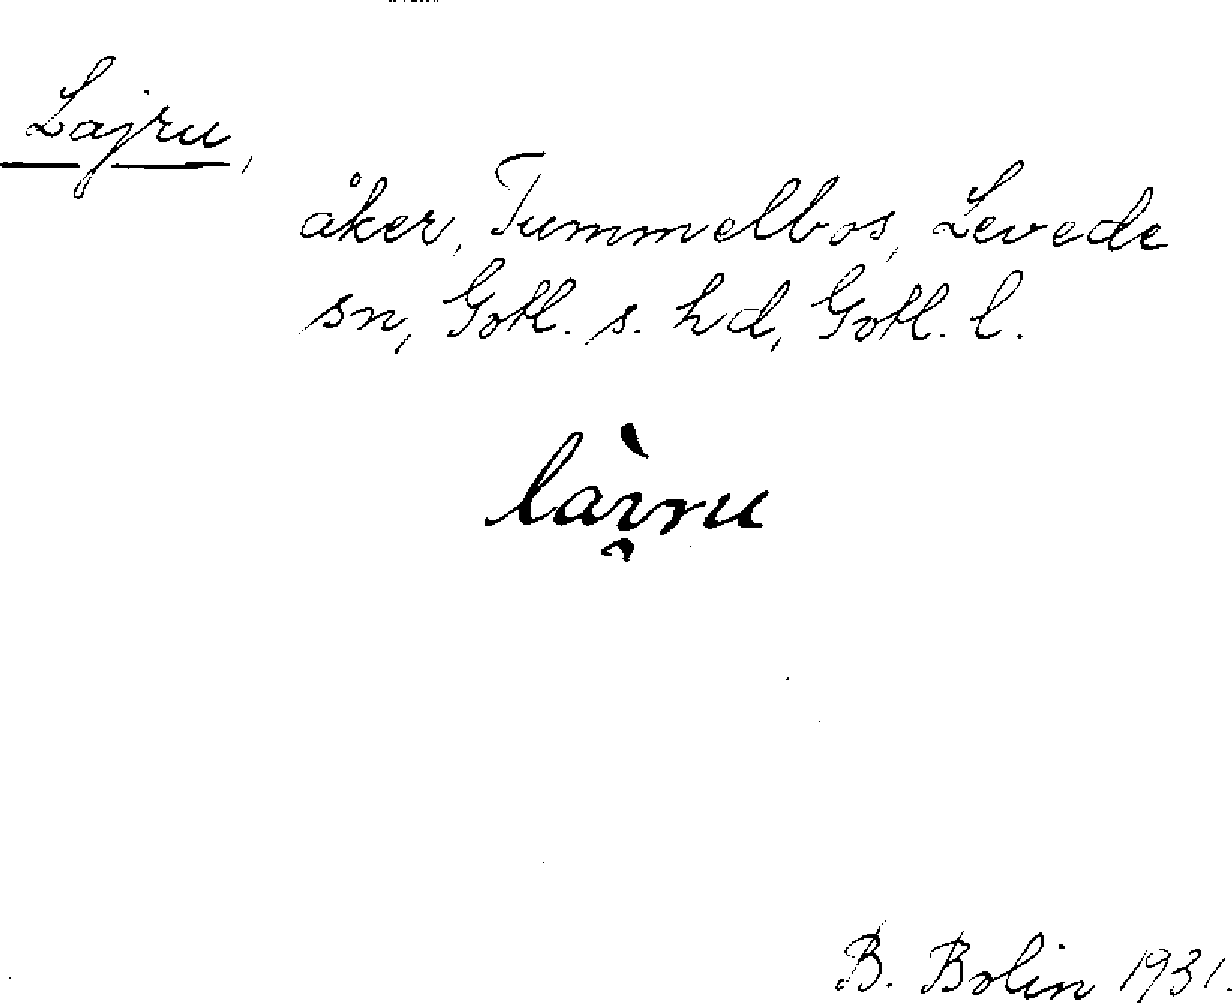 Lajru,
åker, Tummelbos, Levede
sn, Gotl. s. hd, Gotl. l.
B. Bolin 1931.